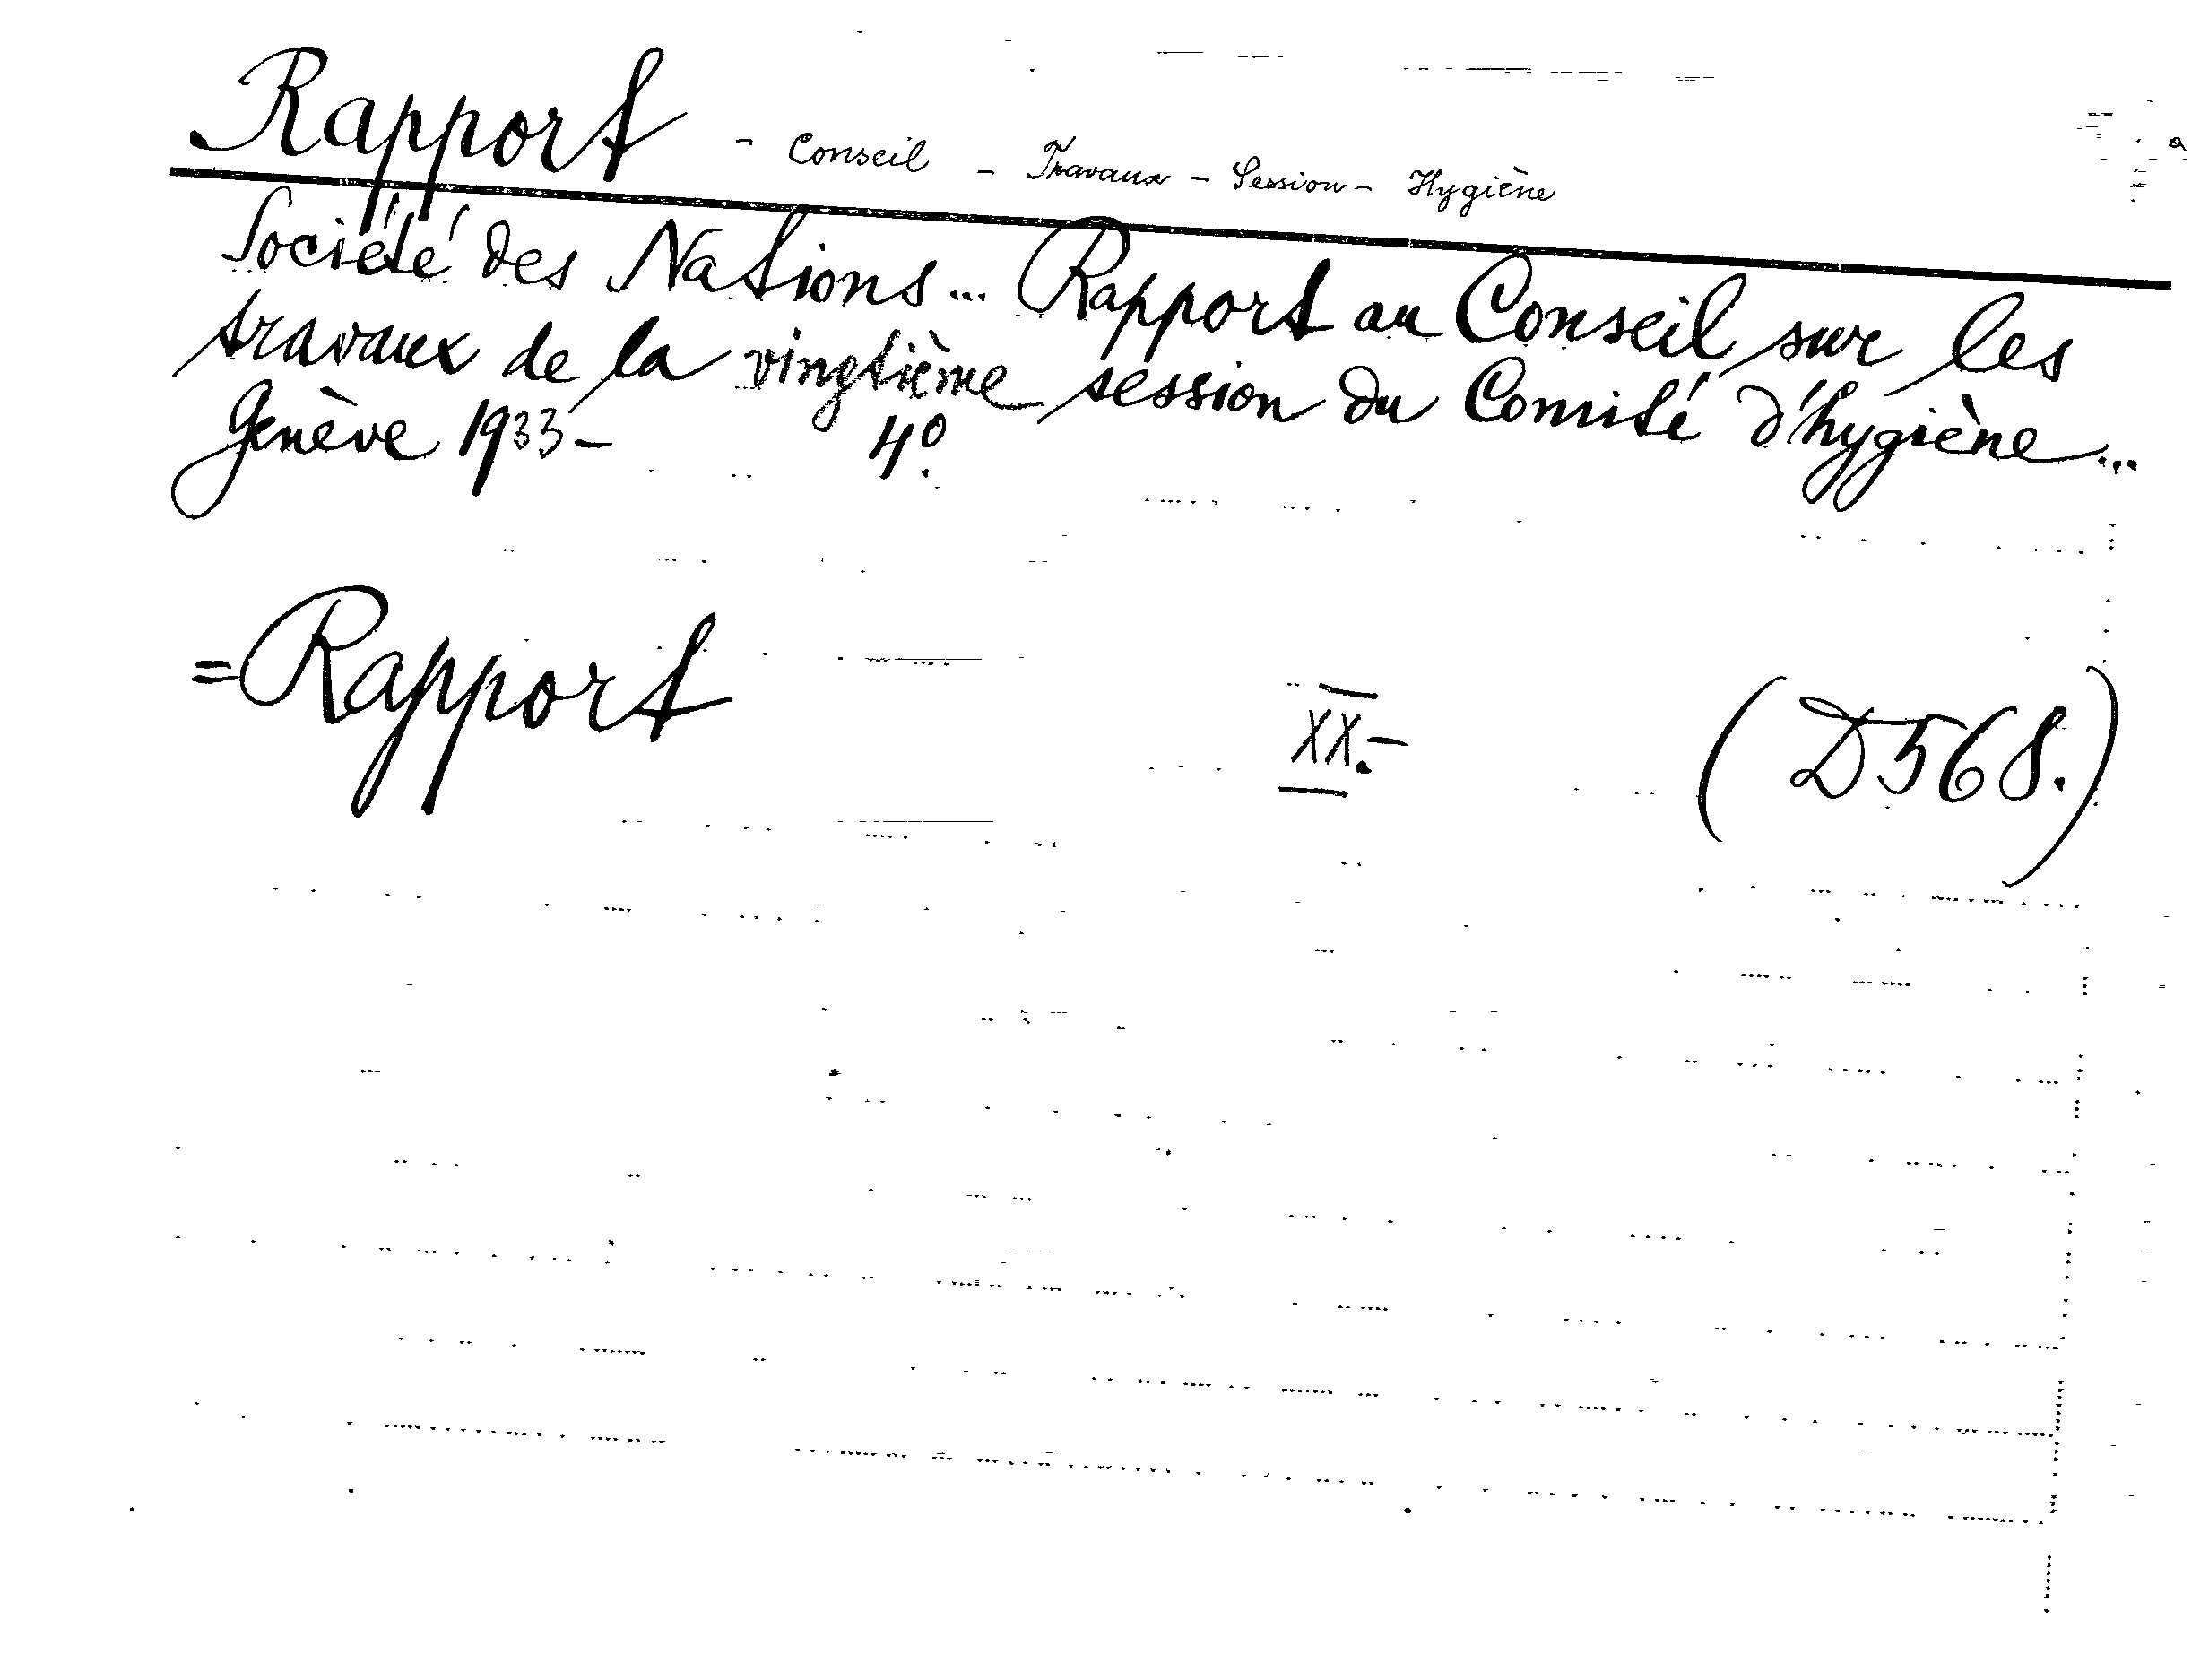 Rapport - Conseil - Travaux - Session - Hygiène
Société des Nations... Rapport au Conseil sur les
travaux de la vingtième session du Comité d'hygiène...
Genève 1933 - 4º.
=Rapport XX.- (D568.)